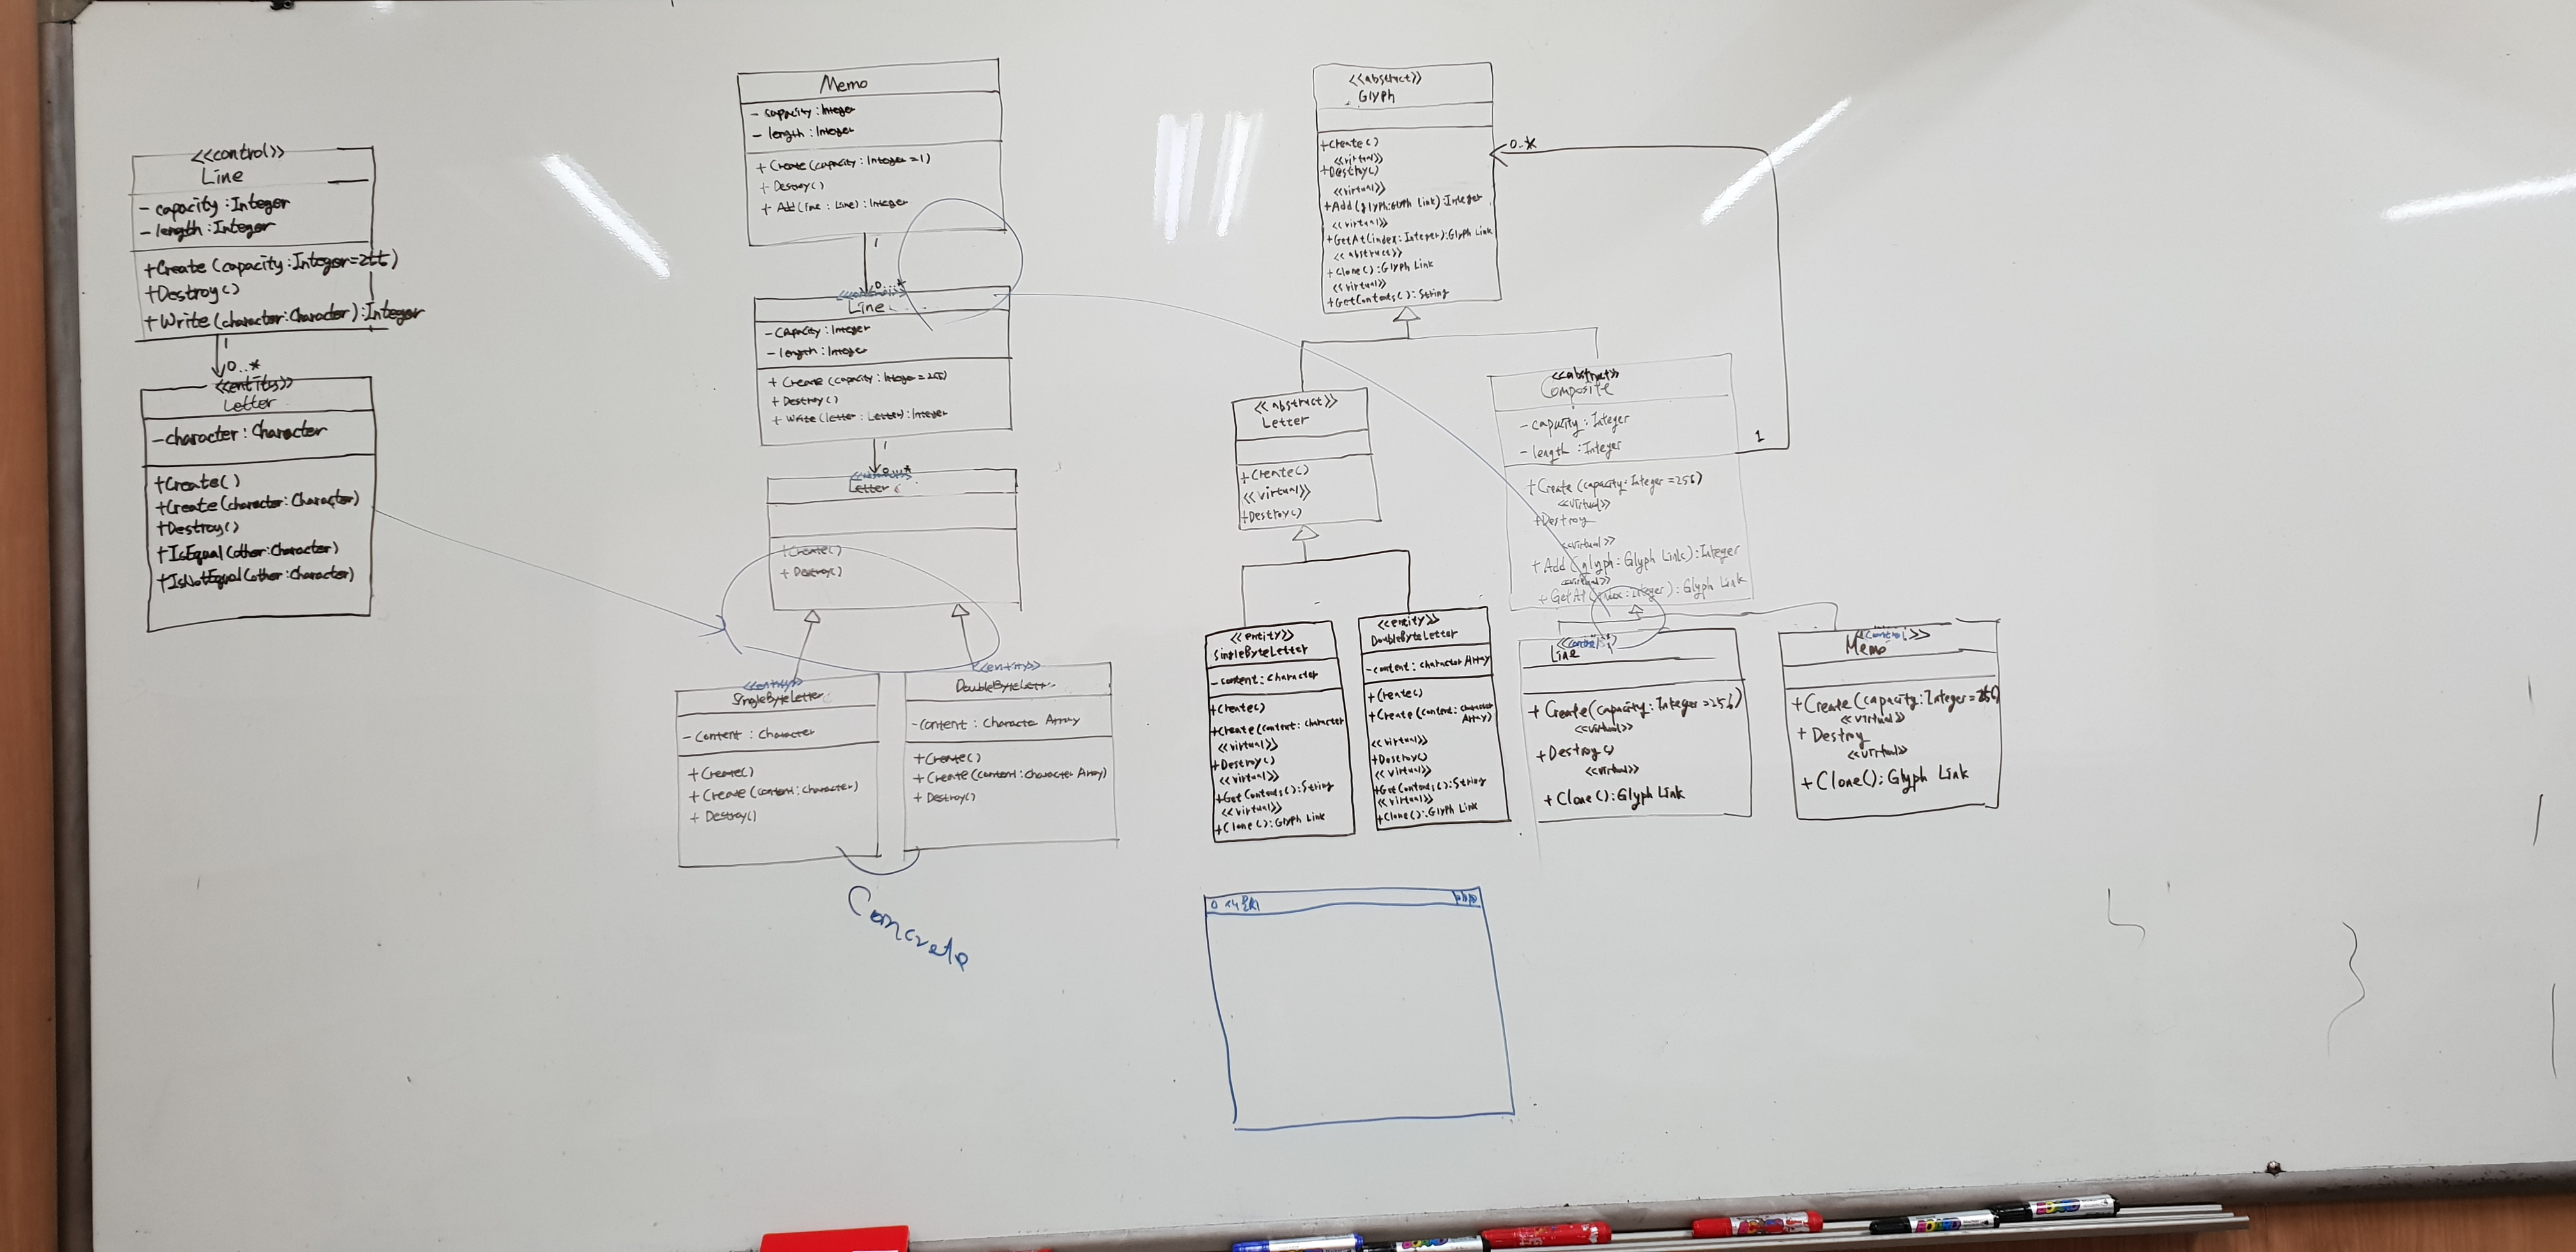 <<control>>
Line
- capacity : Integer
- length : Integer
+Create (capacity:Integer=255)
+Destroy()
+Write(character:Character):Integer
1
0..*
<<entity>>
Letter
-character : Character
+Create()
+Create(character:Character)
+Destroy()
+IsEqual(other:Character)
+IsNotEqual(other:Character)
Memo
- capacity : Integer
- length : Integer
+ Create (capacity : Integer = 1)
+ Destroy()
+ Add (line : Line) : Integer
1
0..*
Line
- Capacity : Integer
- length : Integer
+ Create (capacity : Integer = 255)
+ Destroy()
+ Write (letter : Letter) : Integer
1
0..*
Letter
+Create()
+ Destroy()
<<entity>>
SingleByteLetter
- Content : Character
+ Create()
+ Create (content : Character)
+ Destroy()
<<entity>>
DoubleByteLetter
- Content : Character Array
+ Create()
+ Create (content : Character Array)
+ Destroy()
Concrete
<<abstract>>
Glyph
+Create()
<<virtual>>
+Destroy()
<<virtual>>
+Add (glyph:Glyph Link) : Integer
<<virtual>>
+GetAt (index : Integer) : Glyph Link
<<abstract>>
+ Clone() : Glyph Link
<<virtual>>
+GetContents() : String
0..*
1
<<abstract>>
Letter
+Create()
<<virtual>>
+Destroy()
<<abstract>>
Composite
- capacity : Integer
- length : Integer
+Create (capacity : Integer = 256)
<<virtual>>
+Destroy
<<virtual>>
+ Add (glyph : Glyph Link) : Integer
<<virtual>>
+ GetAt (index : Integer) : Glyph Link
<<entity>>
SingleByteLetter
- content : Character
+Create()
+Create (content : Character
<<virtual>>
+Destroy()
<<virtual>>
+Get Contents() : String
<<virtual>>
+ Clone() : Glyph Link
<<entity>>
DoubleByteLetter
-content : Character Array
+Create()
+Create (content : Character
Array)
<<virtual>>
+Destroy()
<<virtual>>
+Get Contents() : String
<<virtual>>
+Clone() : Glyph Link
<<control>>
Line
+ Create (capacity : Integer = 256)
<<virtual>>
+ Destroy()
<<virtual>>
+ Clone() : Glyph Link
<<control>>
Memo
+ Create (capacity : Integer = 256)
<<virtual>>
+ Destroy
<<virtual>>
+ Clone() : Glyph Link